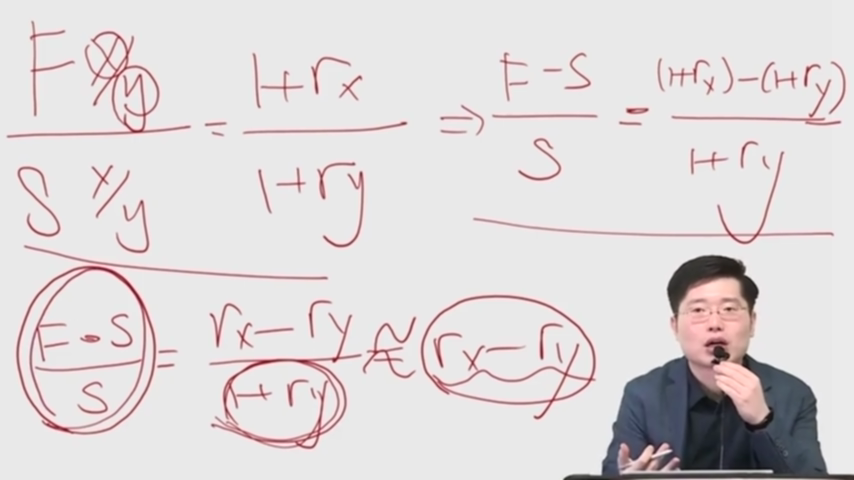 F x/y / S x/y = 1+rx / 1+ry ⇒ F-S / S = (1+rx)-(1+ry) / 1+ry
F-S / S = rx-ry / 1+ry ≈ rx-ry